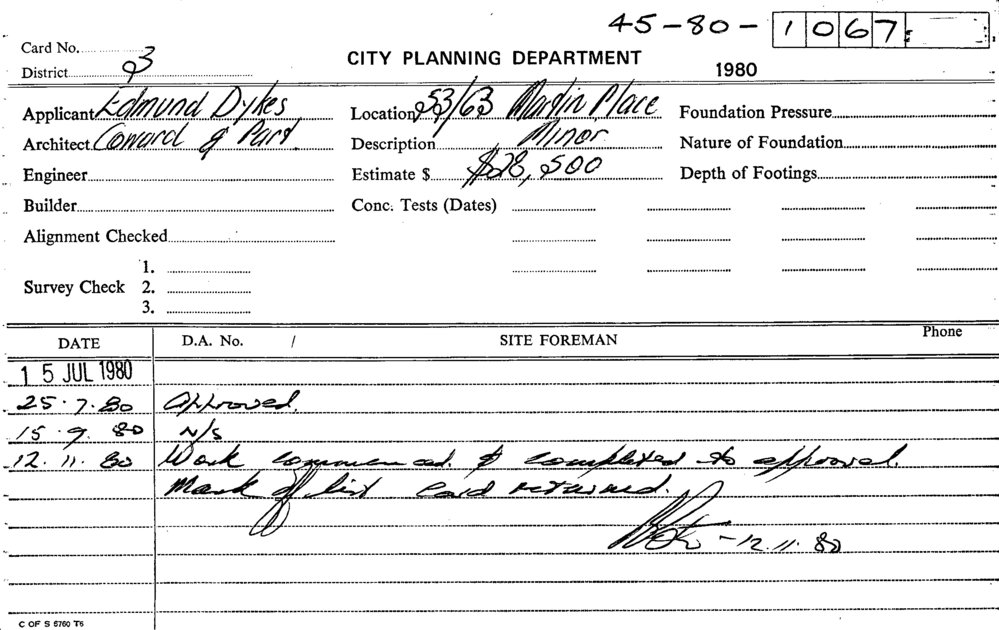 45-80-1067
Card No.
District 3
CITY PLANNING DEPARTMENT
1980
Applicant Edmund Dykes
Location 53/63 Martin Place
Foundation Pressure
Architect Coward & Part
Description Minor
Nature of Foundation
Engineer
Estimate $ $28,500
Depth of Footings
Builder
Conc. Tests (Dates)
Alignment Checked
Survey Check
1.
2.
3.
DATE
D.A. No. /
SITE FOREMAN
Phone
15 JUL 1980
25.7.80 Approved.
15.9.80 N/S
12.11.80 Work commenced & completed to approval.
Mark off list card returned.
-12.11.80
C OF S 5760 T6